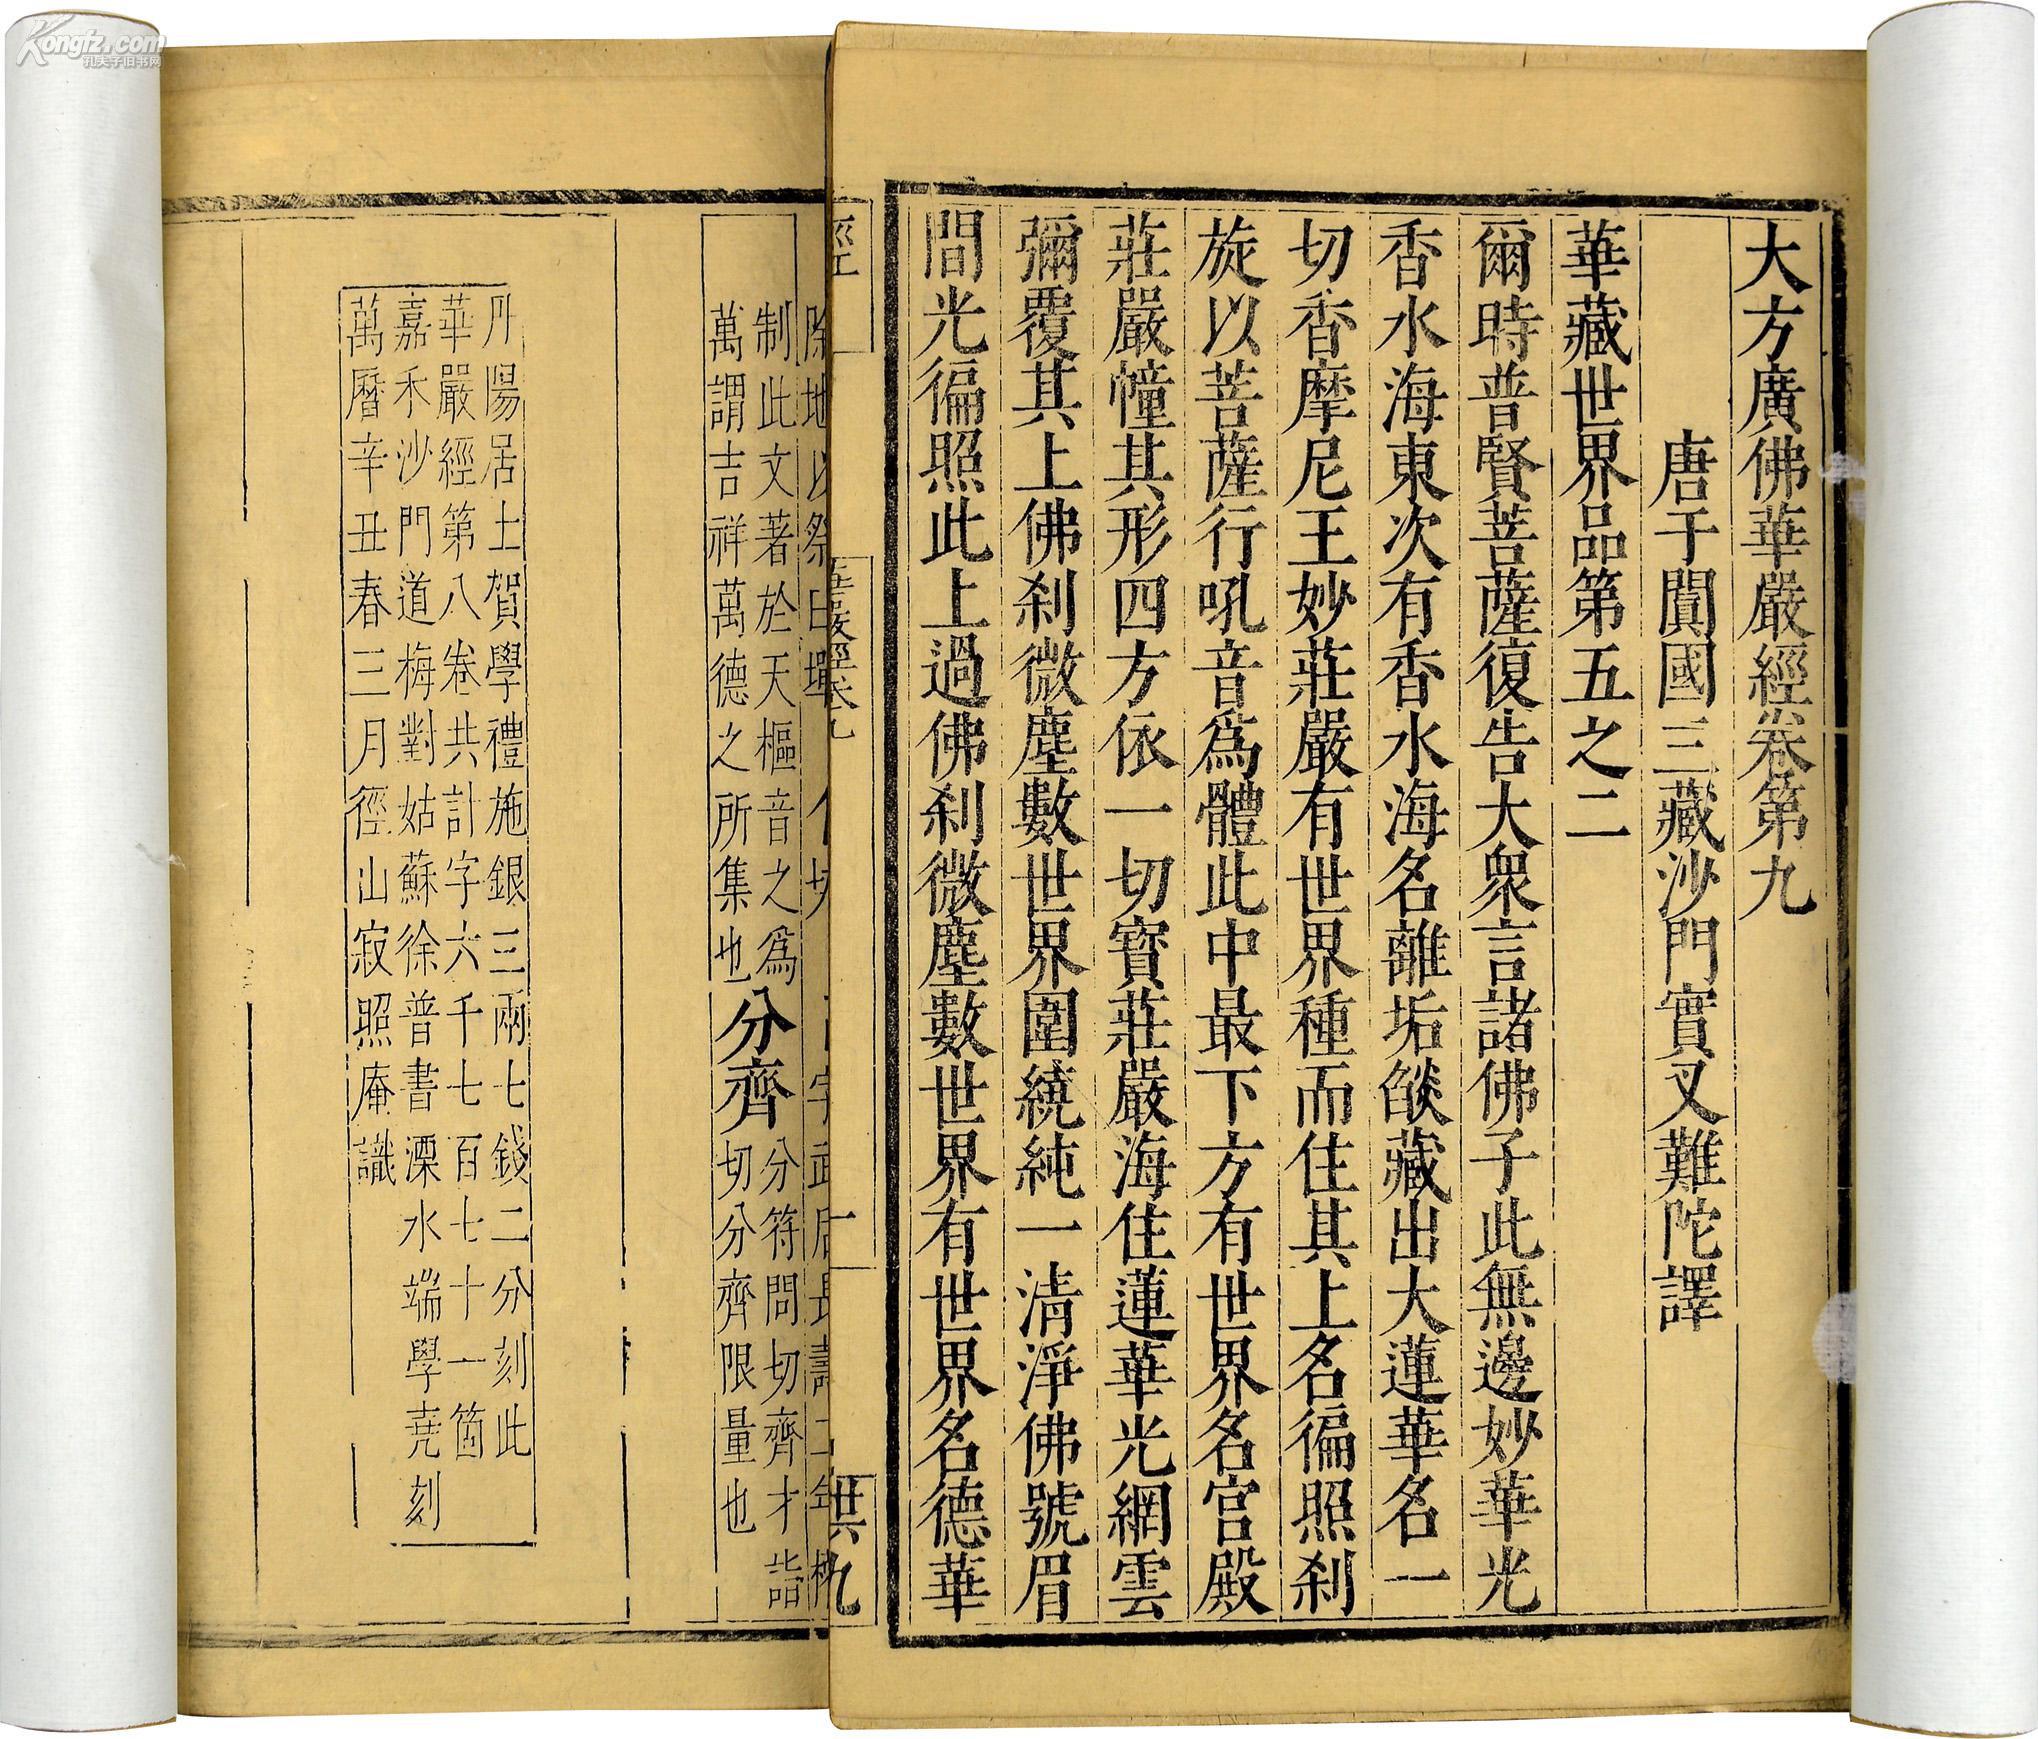 大方廣佛華嚴經卷第九
唐于闐國三藏沙門實叉難陀譯
華藏世界品第五之二
爾時普賢菩薩復告大衆言諸佛子此無邊妙華光
香水海東次有香水海名離垢燄藏出大蓮華名一
切香摩尼王妙莊嚴有世界種而住其上名徧照刹
旋以菩薩行吼音爲體此中最下方有世界名宮殿
莊嚴幢其形四方依一切寶莊嚴海住蓮華光網雲
彌覆其上佛刹微塵數世界圍繞純一清淨佛號眉
間光徧照此上過佛刹微塵數世界有世界名德華
經
華嚴經卷九
一
洪九
制此文著於天樞音之爲
萬謂吉祥萬德之所集也
分齊
分符問切齊才詣
切分齊限量也
丹陽居士賀學禮施銀三兩七錢二分刻此
華嚴經第八卷共計字六千七百七十一箇
嘉禾沙門道梅對姑蘇徐普書溧水端學堯刻
萬曆辛丑春三月徑山寂照庵識
Kongfz.com
孔夫子旧书网